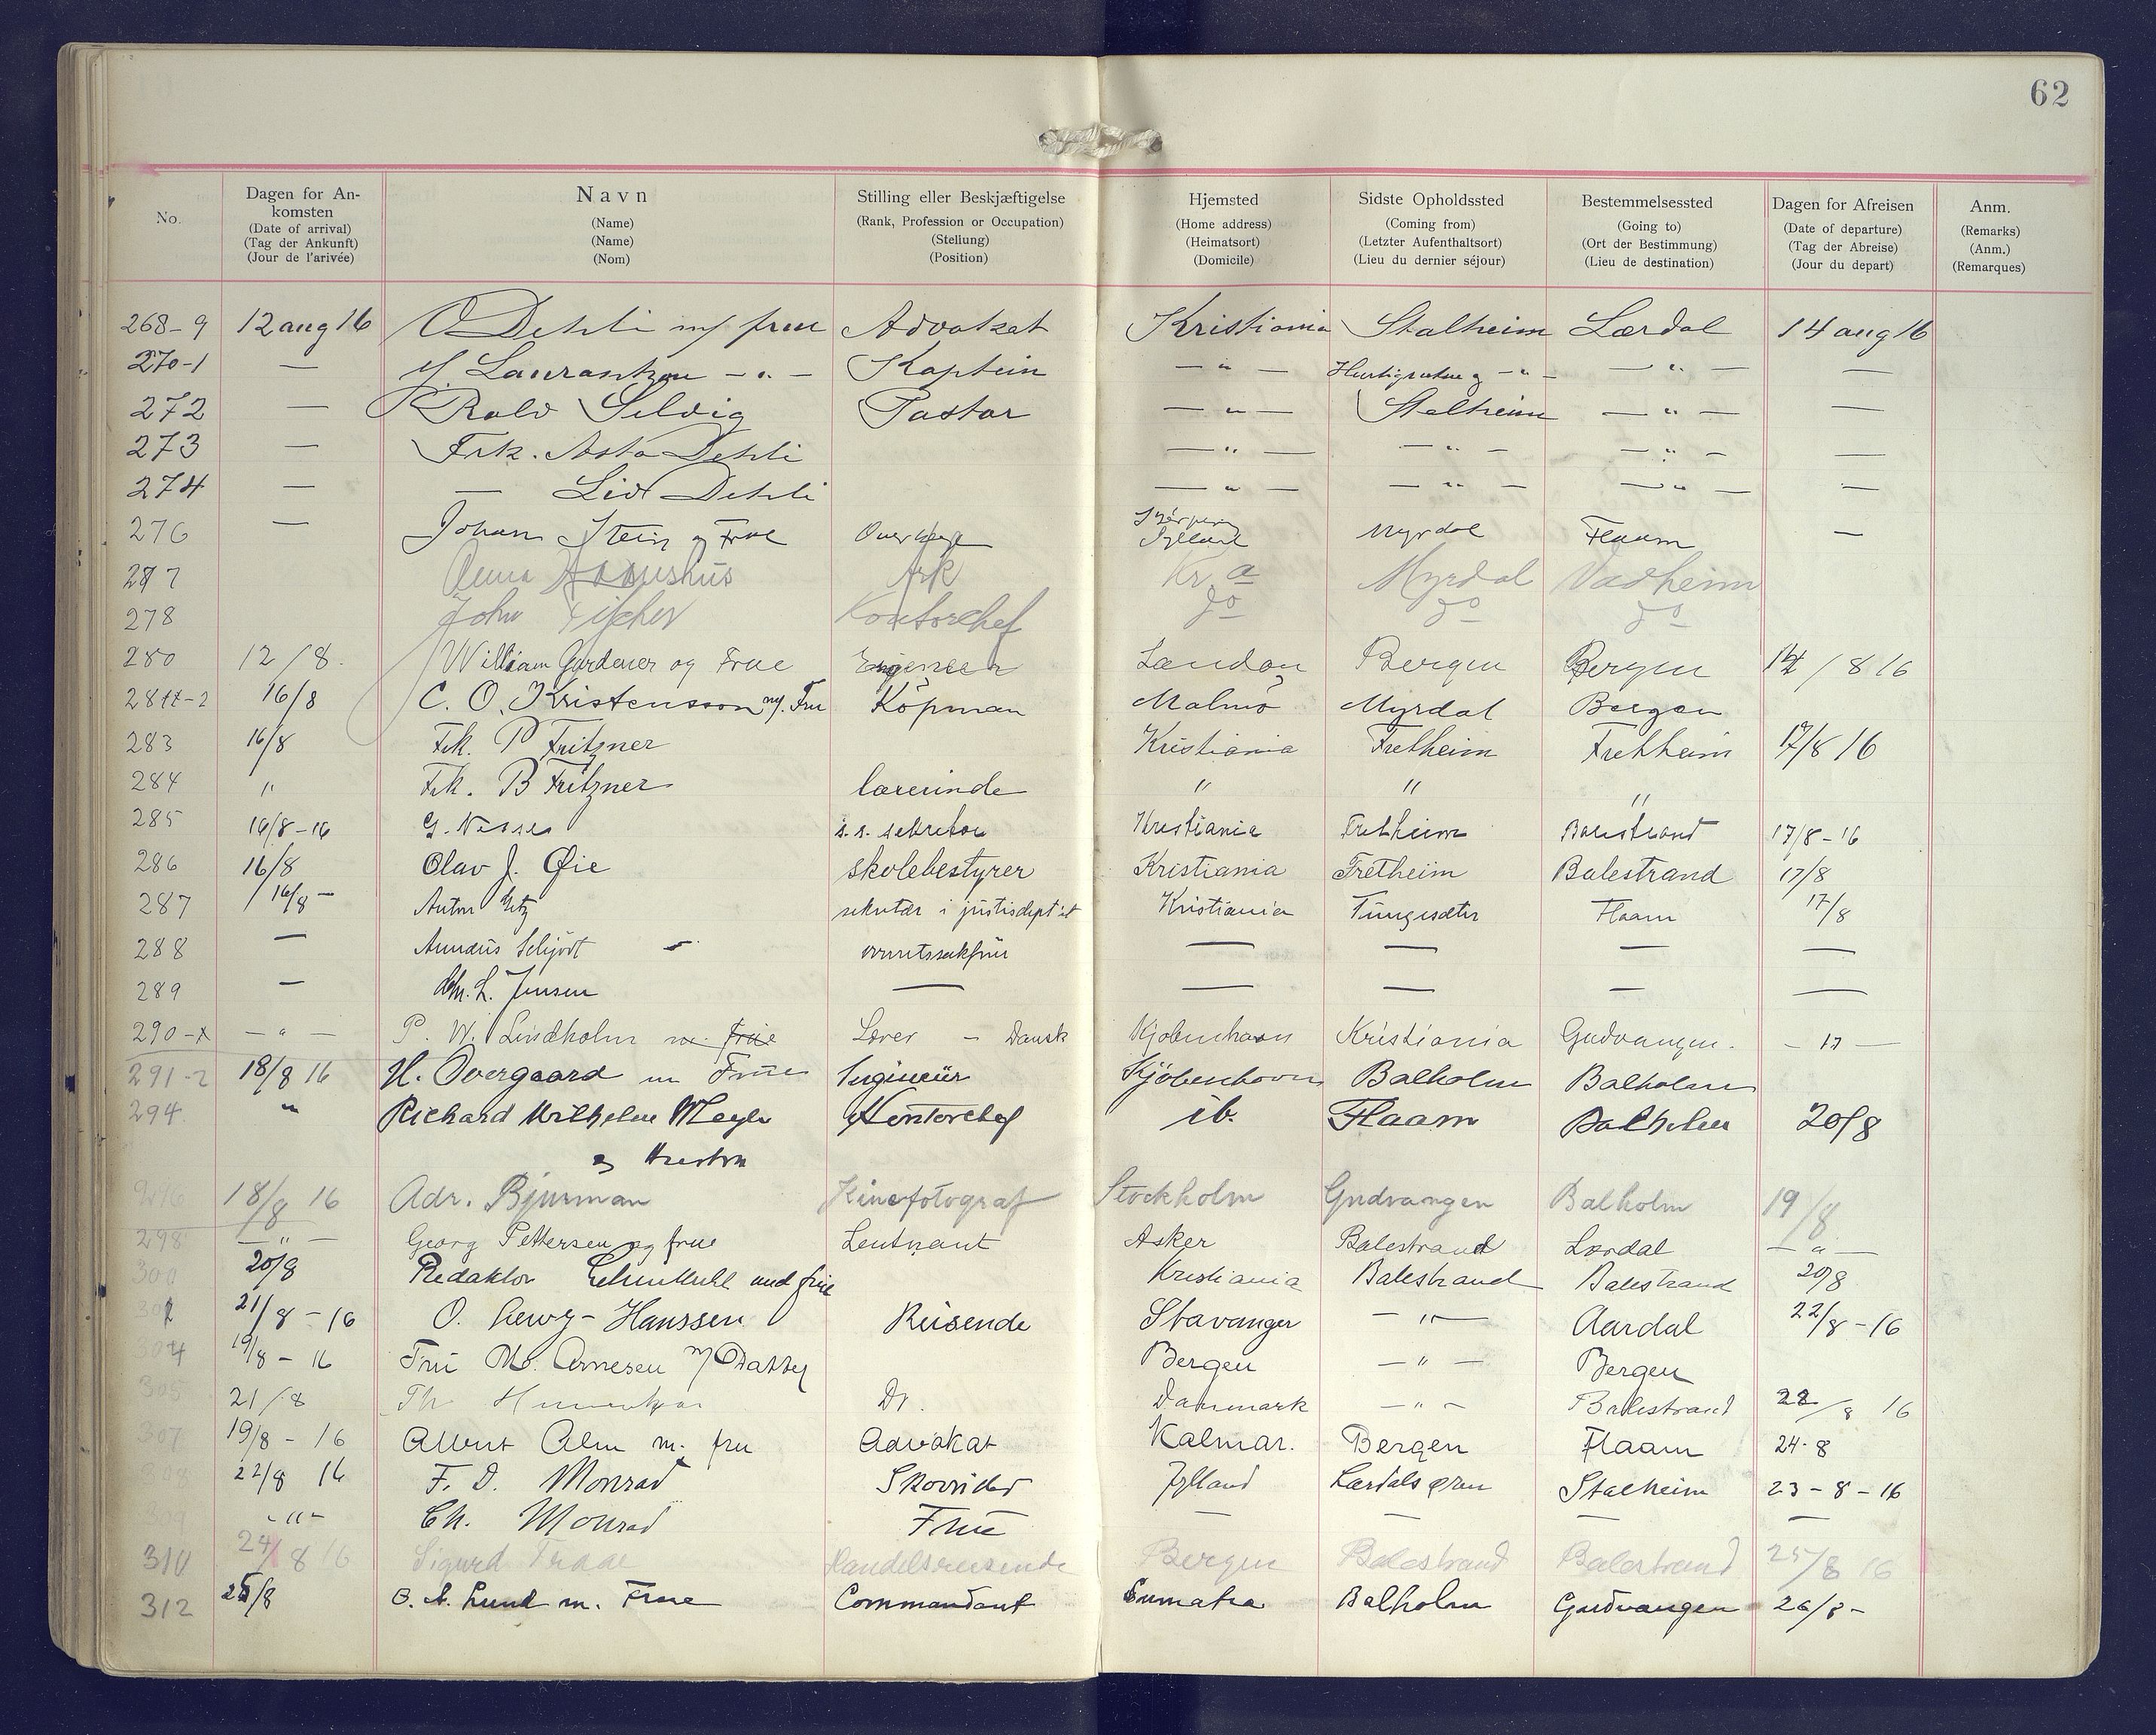 62
No. Dagen for An- Navn Stilling eller Beskjæftigelse Hjemsted Sidste Opholdssted Bestemmelsessted Dagen for Afreisen Anm.
komsten
(Date of arrival) (Name) (Rank, Profession or Occupation) (Home address) (Coming from) (Going to) (Date of departure) (Remarks)
(Tag der Ankunft) (Name) (Stellung) (Heimatsort) (Letzter Aufenthaltsort) (Ort der Bestimmung) (Tag der Abreise) (Anm.)
(Jour de l'arivée) (Nom) (Position) (Domicile) (Lieu du dernier séjour) (Lieu de destination) (Jour du depart) (Remarques)
268-9 12 aug 16 O Dehli m/ frue Advokat Kristiania Stalheim Lærdal 14 aug 16
270-1 — — " — Kaptein — " — — " — — " — —
272 — Rolv Selvig Pastor — " — Stalheim — " — —
273 — Frk. Asta Dehli — " — — " — — " — —
274 — — Liv Dehli — " — — " — — " — —
276 — Johan Stein og Frue Jylland Myrdal Flaam —
277 Anna Kr.a Myrdal Vadheim
278 John Fischer Kontorchef do do do
280 12/8. William Gardener og Frue Engineer London Bergen Bergen 14/8 16
281-2 16/8 C. O. Kristensson m/. Fru Köpman Malmö Myrdal Bergen
283 16/8 Frk. P Fritzner Kristiania Fretheim Fretheim 17/8 16
284 " Frk. B Fritzner lærerinde " " "
285 16/8-16 G. s. s. sekretær Kristiania Fretheim Balestrand 17/8-16
286 16/8 Olav J. Øie skolebestyrer Kristiania Fretheim Balestrand 17/8
287 16/8 — Anton sekretær i justisdept'et Kristiania Flaam 17/8
288 — Schjödt — — — —
289 — Chr. L. Jensen — — — — —
290-x — " — P. W. Lindholm m. frue — Dansk Kjøbenhavn Kristiania Gudvangen. — 17 —
291-2 18/8 16 H. Overgaard m Frue Ingeniür Kjöbenhavn Balholm Balholm
294. " Richard Wilhelm Kontorchef ib. Flaam Balholm 20/8
og Hustru
18/8 16 Adr. Bjurman Kinofotograf Stockholm Gudvangen Balholm 19/8
298 — " — Georg Pettersen og frue Leutnant Asker Balestrand Lærdal — " —
300 20/8 Redaktør und frue Kristiania Balestrand Balestrand 20/8
21/8-16 O. Lewy-Hanssen Reisende Stavanger — " — Aardal 22/8-16
304 19/8-16 Fru M. Arnesen m/ Datter Bergen — " — Bergen
305 21/8 Th Dr. Danmark — " — Balestrand 22/8 16
307 19/8-16 Albert Alm m. fru Advokat Kalmar. Bergen Flaam 24-8
22/8 16 F. D. Monrad Skovrider Jylland Lærdalsøren Stalheim 23-8-16
- " - Ch. Monrad Frue — — — —
310 24/8 16 Sigurd Traae Handelsreisende Bergen Balestrand Balestrand 25/8 16
312 25/8 Lund m. Frue Commandant Sumatra Balholm Gudvangen 26/8-